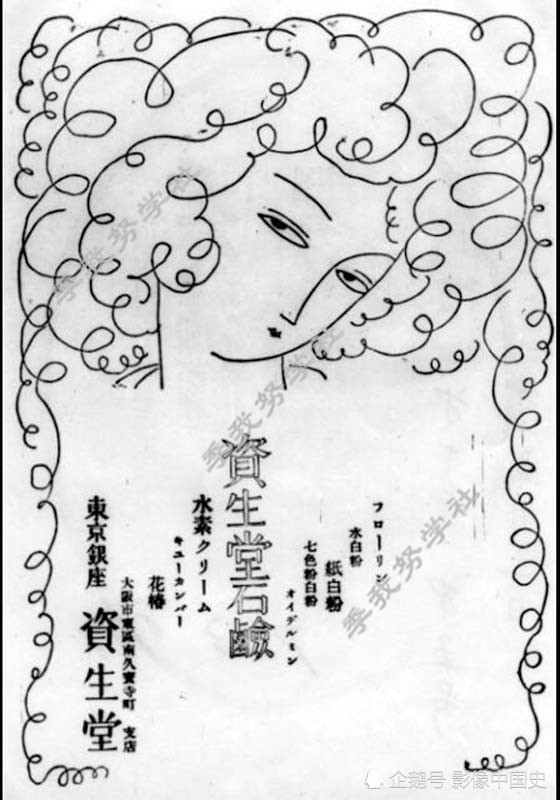 フローリン
水白粉
紙白粉
七色粉白粉
オイデルミン
資生堂石鹼
水素クリーム
キユーカンバー
花椿
大阪市東區南久寳寺町 支店
東京銀座 資生堂
季我努学社
季我努学社
季我努学社
企鹅号 影像中国史